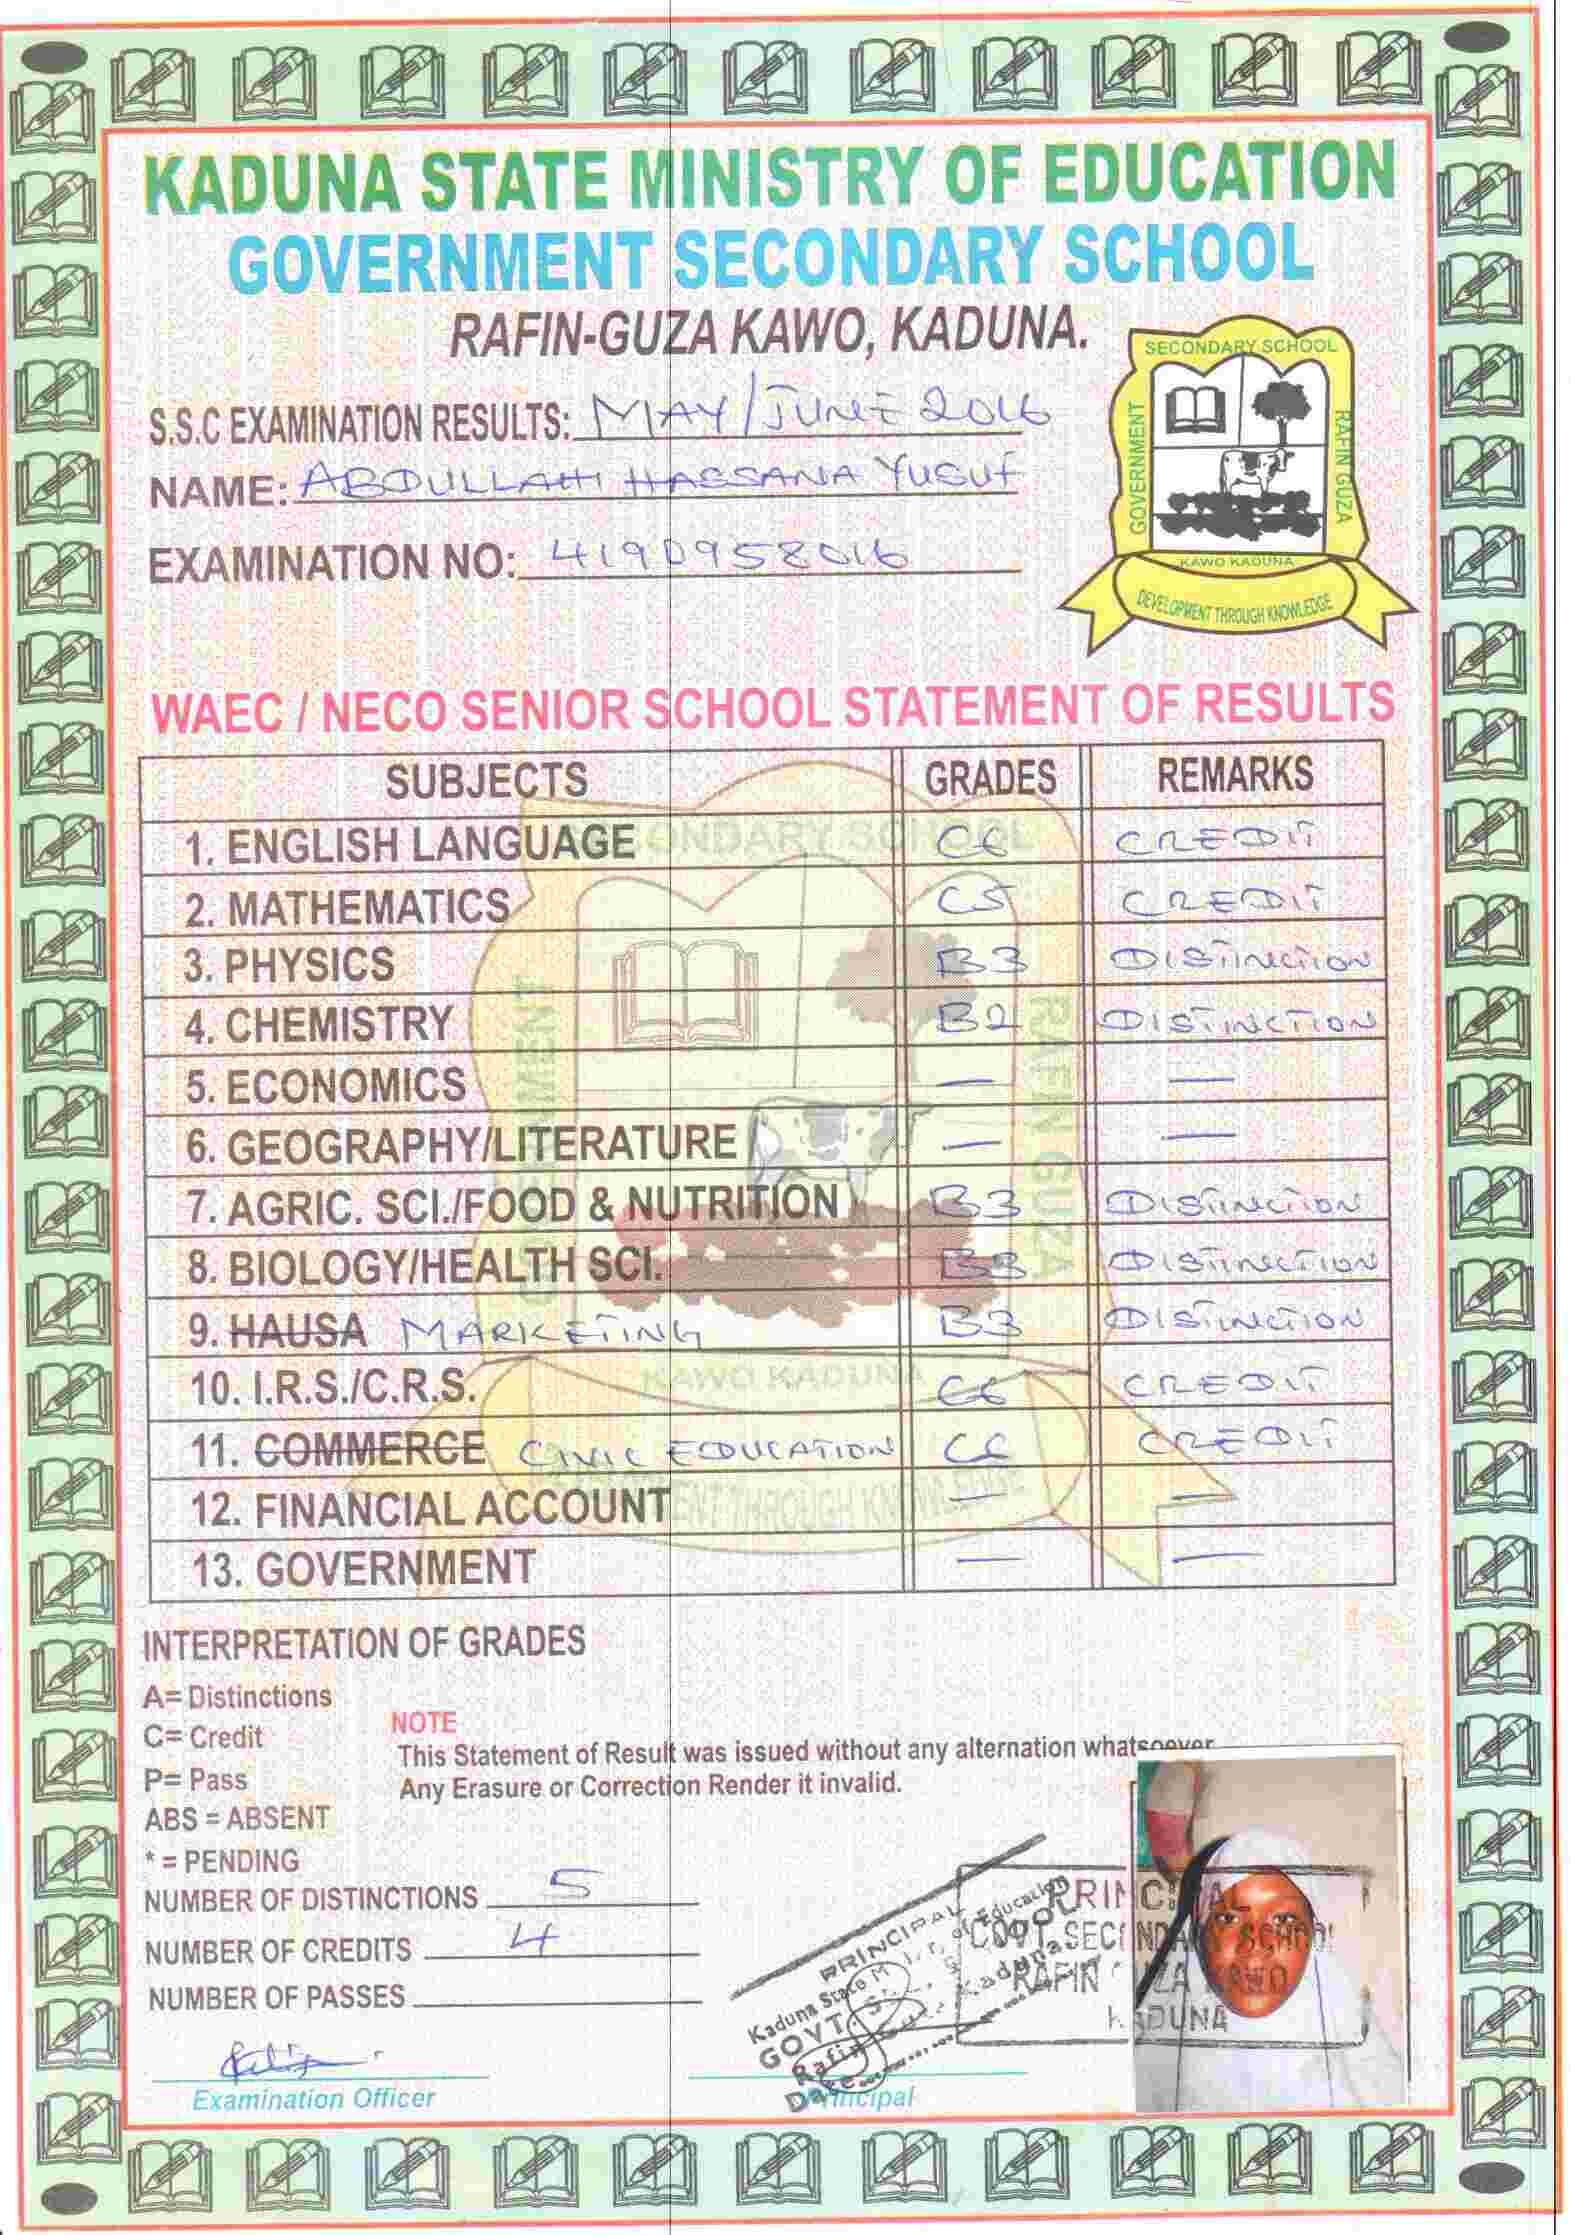 KADUNA STATE MINISTRY OF EDUCATION
GOVERNMENT SECONDARY SCHOOL
RAFIN-GUZA KAWO, KADUNA.
S.S.C EXAMINATION RESULTS: MAY/JUNE 2016
NAME: ABDULLAHI HASSANA YUSUF
EXAMINATION NO: 4190958016
SECONDARY SCHOOL
GOVERNMENT
RAFIN GUZA
KAWO KADUNA
DEVELOPMENT THROUGH KNOWLEDGE
WAEC / NECO SENIOR SCHOOL STATEMENT OF RESULTS
SUBJECTS GRADES REMARKS
1. ENGLISH LANGUAGE C6 CREDIT
2. MATHEMATICS C5 CREDIT
3. PHYSICS B3 DISTINCTION
4. CHEMISTRY B2 DISTINCTION
5. ECONOMICS — —
6. GEOGRAPHY/LITERATURE — —
7. AGRIC. SCI./FOOD & NUTRITION B3 DISTINCTION
8. BIOLOGY/HEALTH SCI. B3 DISTINCTION
9. HAUSA MARKETING B3 DISTINCTION
10. I.R.S./C.R.S. C6 CREDIT
11. COMMERCE CIVIC EDUCATION C6 CREDIT
12. FINANCIAL ACCOUNT — —
13. GOVERNMENT — —
INTERPRETATION OF GRADES
A= Distinctions
C= Credit
P= Pass
ABS = ABSENT
* = PENDING
NOTE
This Statement of Result was issued without any alternation whatsoever
Any Erasure or Correction Render it invalid.
NUMBER OF DISTINCTIONS 5
NUMBER OF CREDITS 4
NUMBER OF PASSES
PRINCIPAL
Kaduna State of Education
GOVT.
Rafin Kaduna
Date
PRINCIPAL
GOVT SECONDARY SCHOOL
RAFIN GUZA KAWO
KADUNA
Examination Officer
Principal